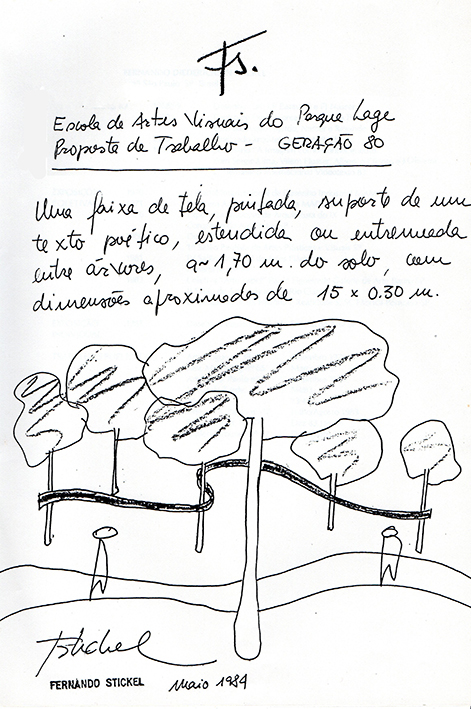 Fs.
Escola de Artes Visuais do Parque Lage
Proposta de Trabalho - GERAÇÃO 80
Uma faixa de tela, pintada, suporte de um
texto poético, estendida ou entremeada
entre árvores, a ~ 1,70 m. do solo, com
dimensões aproximadas de 15 x 0.30 m.
Stickel
FERNANDO STICKEL Maio 1984